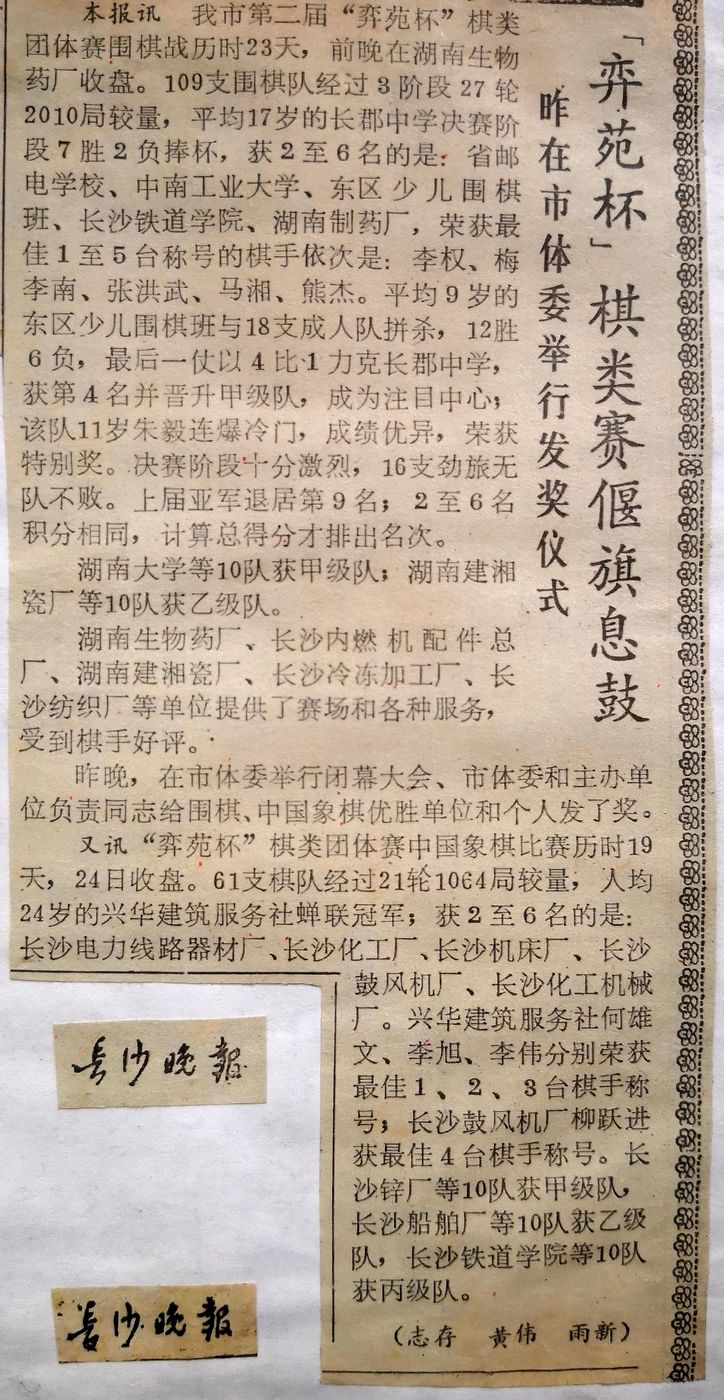 「弈苑杯」棋类赛偃旗息鼓
昨在市体委举行发奖仪式
本报讯 我市第二届“弈苑杯”棋类
团体赛围棋战历时23天，前晚在湖南生物
药厂收盘。109支围棋队经过3阶段27轮
2010局较量，平均17岁的长郡中学决赛阶
段7胜2负捧杯，获2至6名的是：省邮
电学校、中南工业大学、东区少儿围棋
班、长沙铁道学院、湖南制药厂，荣获最
佳1至5台称号的棋手依次是：李权、梅
李南、张洪武、马湘、熊杰。平均9岁的
东区少儿围棋班与18支成人队拼杀，12胜
6负，最后一仗以4比1力克长郡中学，
获第4名并晋升甲级队，成为注目中心；
该队11岁朱毅连爆冷门，成绩优异，荣获
特别奖。决赛阶段十分激烈，16支劲旅无
队不败。上届亚军退居第9名；2至6名
积分相同，计算总得分才排出名次。
湖南大学等10队获甲级队；湖南建湘
瓷厂等10队获乙级队。
湖南生物药厂、长沙内燃机配件总
厂、湖南建湘瓷厂、长沙冷冻加工厂、长
沙纺织厂等单位提供了赛场和各种服务，
受到棋手好评。
昨晚，在市体委举行闭幕大会、市体委和主办单
位负责同志给围棋、中国象棋优胜单位和个人发了奖。
又讯 “弈苑杯”棋类团体赛中国象棋比赛历时19
天，24日收盘。61支棋队经过21轮1064局较量，人均
24岁的兴华建筑服务社蝉联冠军；获2至6名的是：
长沙电力线路器材厂、长沙化工厂、长沙机床厂、长沙
鼓风机厂、长沙化工机械
厂。兴华建筑服务社何雄
文、李旭、李伟分别荣获
最佳1、2、3台棋手称
号；长沙鼓风机厂柳跃进
获最佳4台棋手称号。长
沙锌厂等10队获甲级队，
长沙船舶厂等10队获乙级
队，长沙铁道学院等10队
获丙级队。
（志存 黄伟 雨新）
长沙晚报
长沙晚报